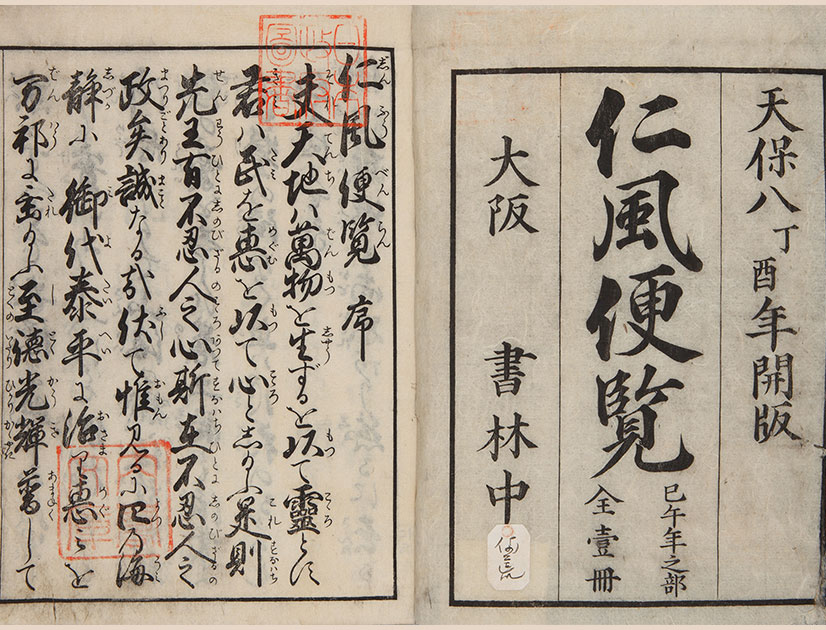 天保八丁酉年開版
仁風便覧
巳午年之部
全壹冊
大阪 書林中
仁風便覧序
夫天地ハ萬物を生ずるを以て靈とす
君ハ民を恵を以て心とし給ふ是則
先王有不忍人之心斯在不忍人之
政矣誠なる哉伏て惟見るに四乃海
静に御代泰平に治り恵ミを
万邦に垂給ふ至徳光輝普して